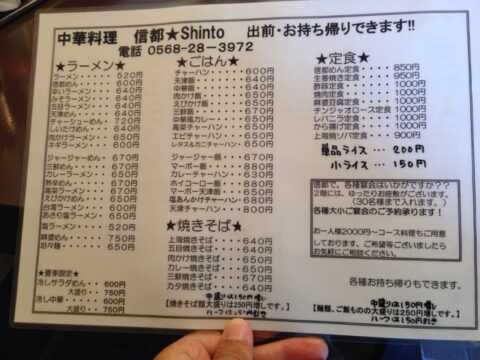 中華料理 信都★Shinto 出前・お持ち帰りできます!!
電話 0568-28-3972
★ラーメン★
ラーメン・・・・・520円
信都めん・・・・640円
辛いラーメン・・・640円
みそラーメン・・・640円
五目ラーメン・・・640円
天津めん・・・・・640円
チャーシューめん・・720円
しいたけめん・・・640円
肉かけラーメン・・650円
ネギラーメン・・・600円
ジャージャーめん・・670円
三鮮めん・・・・・670円
カレーラーメン・・670円
熱辛めん・・・・・670円
高菜ラーメン・・・650円
えびかけめん・・・650円
台湾ラーメン・・・600円
あさり塩ラーメン・・650円
塩ラーメン・・・・550円
麻婆めん・・・・・750円
坦々麺・・・・・・650円
★夏季限定★
冷しサラダめん・・600円
大盛り・・750円
冷し中華・・・・600円
大盛り・・750円
★ごはん★
チャーハン・・・・600円
天津飯・・・・・・640円
中華飯・・・・・・640円
肉かけ飯・・・・・650円
えびかけ飯・・・・650円
三鮮飯・・・・・・670円
中華風カレー・・・650円
高菜チャーハン・・650円
エビチャーハン・・650円
レタス&カニチャーハン・・650円
ジャージャー飯・・670円
マーボー飯・・・・680円
カレーチャーハン・・630円
ホイコーロー飯・・700円
マーボー天津飯・・650円
塩あんかけチャーハン・・680円
天津チャーハン・・800円
★焼きそば★
上海焼きそば・・・640円
五目焼きそば・・・640円
肉かけ焼きそば・・650円
カレー焼きそば・・650円
三鮮焼きそば・・・670円
カタ焼きそば・・・640円
中盛りは150円増し
【焼きそば類大盛りは250円増しです。】
ハーフは50円引き
★定食★
信都めん定食・・・・850円
生姜焼き定食・・・・950円
酢豚定食・・・・・1000円
焼肉定食・・・・・1000円
麻婆豆腐定食・・・1000円
チンジャオロース定食・・1000円
レバニラ定食・・・1000円
から揚げ定食・・・1000円
上海焼ソバ定食・・・900円
単品ライス・・・200円
小ライス・・・150円
信都で、各種宴会はいかがですか??
2階には、ゆったりお座敷がございます。
(30名まで入れます。)
各種大小ご宴会のご予約承ります!
お一人様2000円~コース料理もご用意
しております、ご希望等ございましたら
お気軽にご相談ください。
各種お持ち帰りもできます。
中盛りは150円増し
【麺類、ご飯もの大盛りは250円増しです。】
ハーフは50円引き